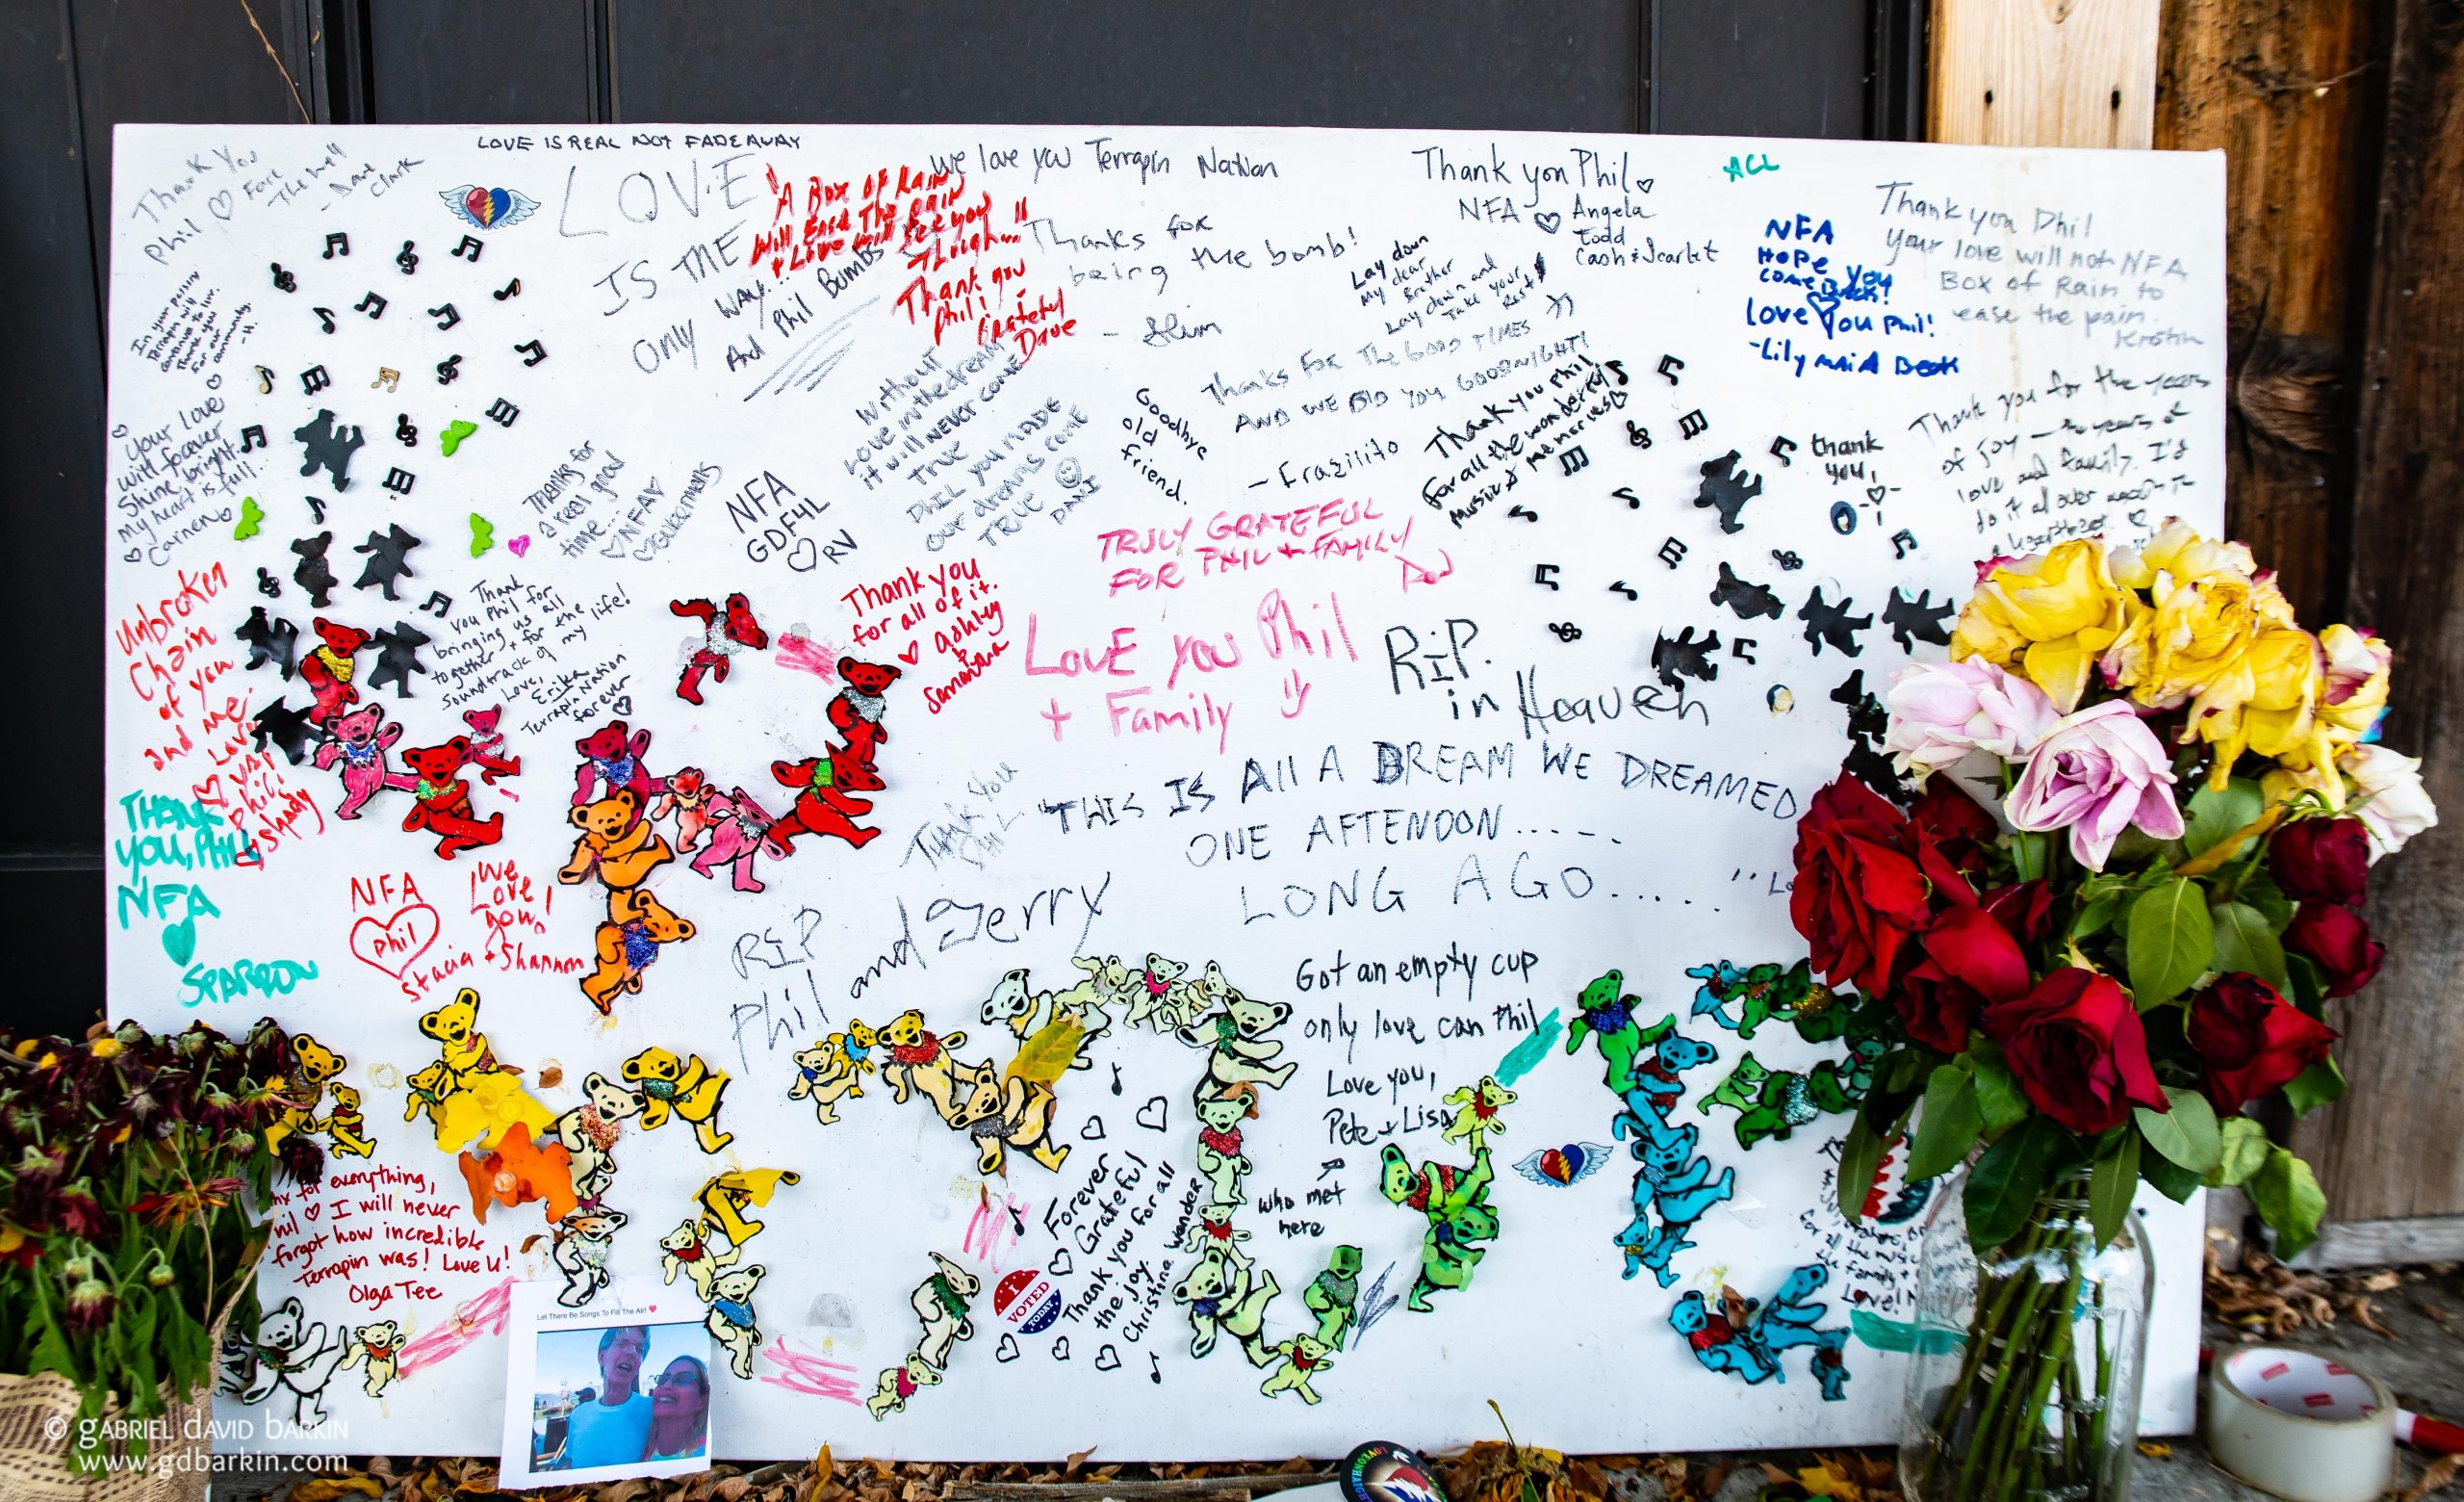 LOVE IS REAL NOT FADE AWAY
Thank You
Phil ♡ Fare
The Well
- Dave
Clark
LOVE
IS THE
ONLY WAY...
And Phil Bombs
"A Box of Rain
Will Ease The Pain
+ Love will see you
Through..."
Thank you
Phil!
Grateful
Dave
We love you Terrapin Nation
Thanks for
being the bomb!
- Slim
Thank you Phil ♡
NFA ♡ Angela
Todd
Cash & Scarlet
ACL
NFA
HOPE You
come Back!
Love You Phil!
-Lily Mai A Beck
Thank you Phil
your love will not NFA
Box of Rain to
ease the pain.
Kristin
Lay down
My dear
Brother
Lay down and
Take your
Rest
Thanks for the Good Times
AND WE BID YOU GOODNIGHT!
- Frazilito
In your passing
Terrapin will
continue to live.
Thank you
For our
community.
-H.
Your Love
will forever
Shine bright.
my heart is full...
♡ Carmen ♡
Without
Love in the dream
it will never come
true
PHIL YOU MADE
our dreams come
TRUE ☺
DANI
Goodbye
old
friend.
Thank you Phil
for all the wonderful
Music & Memories ♡
thank
you!
Thank you for the years
of joy — the years of
love and family. I'd
do it all over
Thanks for
a real good
time...
♡ NFA ♡
NFA
GDF4L
♡ RV
TRULY GRATEFUL
FOR PHIL + FAMILY
Thank
you Phil for
bringing us all
together + for the
soundtrack of my life!
Love,
Erika
Terrapin Nation
forever
♡
Thank you
for all of it.
♡ Ashley
+
Samantha
Unbroken
Chain
of you
and me.
♡ Love
LOVE YOU Phil
+ Family
RIP.
in Heaven
THANK
YOU, PHIL
NFA
SPARROW
NFA
Phil
We
Love
you!
Stacia + Shannon
THANK YOU
"THIS IS All A DREAM WE DREAMED
ONE AFTENOON.....
LONG AGO.....
RIP
Phil and Jerry
Got an empty cup
only love can Phil
Love you,
Pete + Lisa
who met
here
for everything,
♡ I will never
forgot how incredible
Terrapin was! Love U!
Olga Tee
Forever
Grateful
Thank you for all
the joy. wonder
Christine
I
VOTED
TODAY
for all the music
the family +
Love!
Let There Be Songs To Fill The Air! ♥
© gabriel david barkin
www.gdbarkin.com